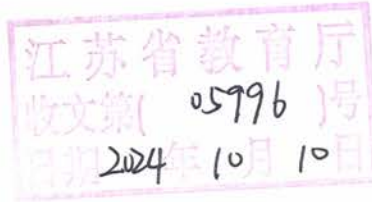 江苏省教育厅
收文第( 05996 )号
日期2024年10月10日